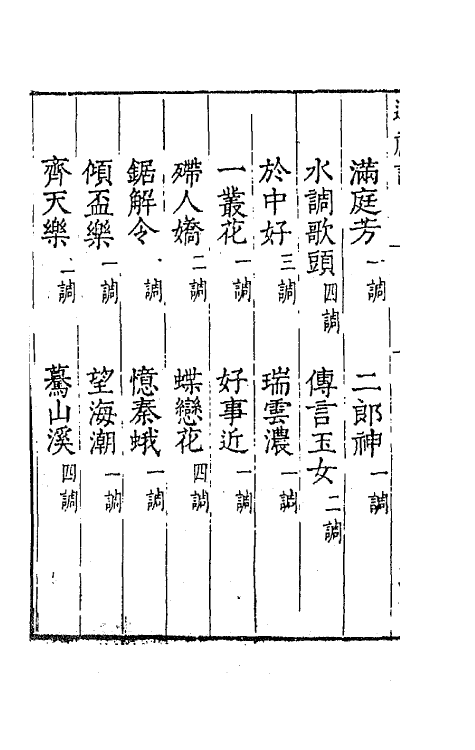 滿庭芳一調　二郎神一調
水調歌頭四調　傳言玉女二調
於中好三調　瑞雲濃一調
一叢花一調　好事近一調
殢人嬌二調　蝶戀花四調
鋸解令　調　憶秦蛾一調
傾盃樂一調　望海潮一調
齊天樂一調　驀山溪四調